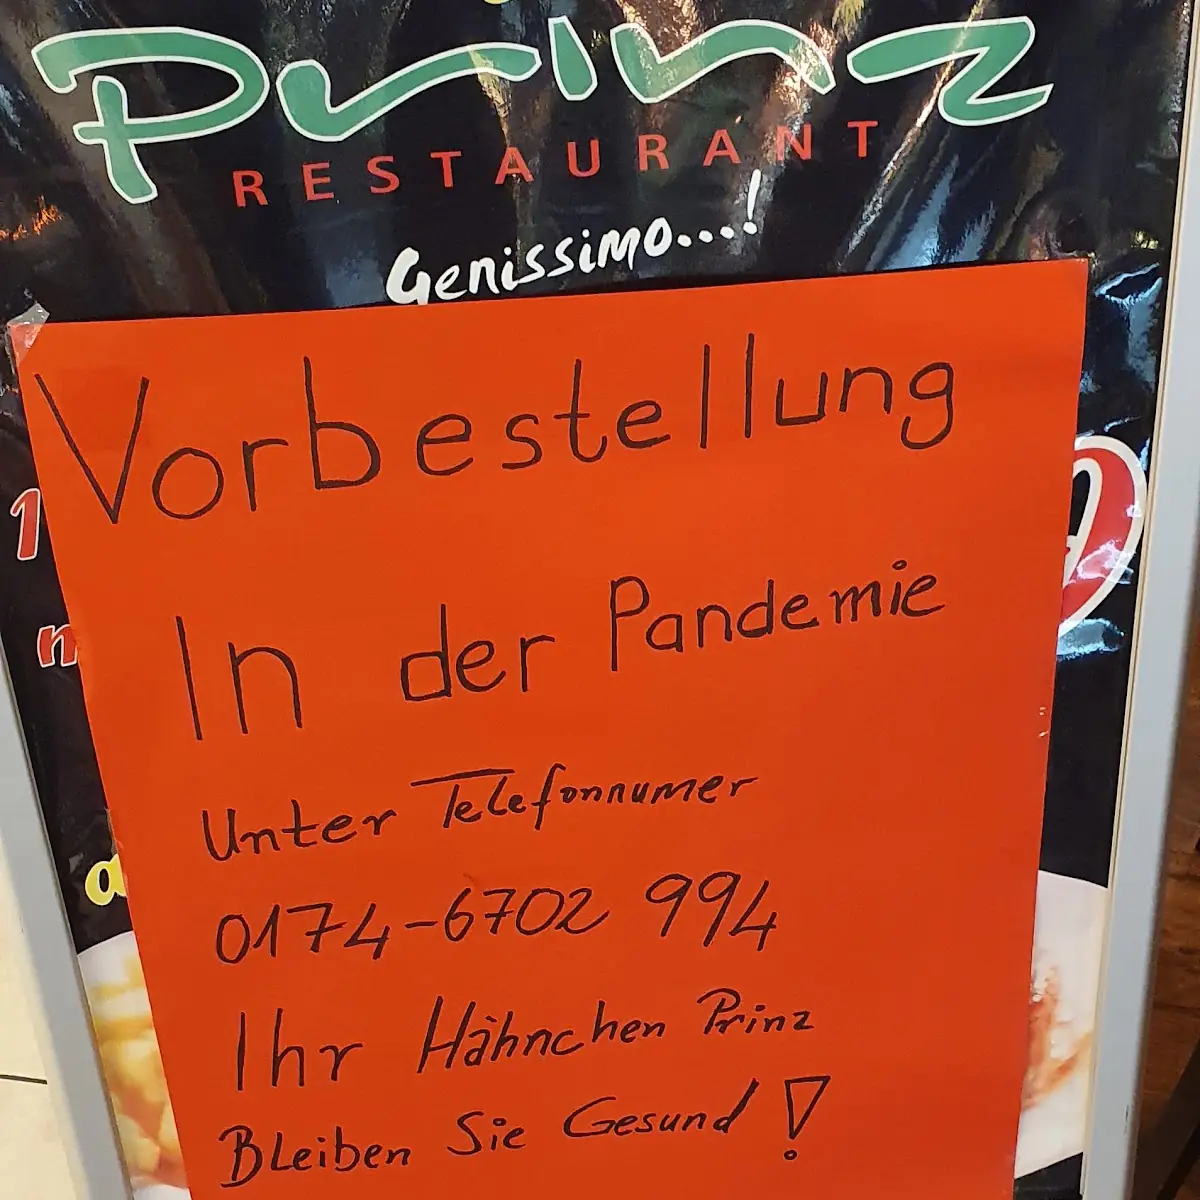 Prinz
RESTAURANT
Genissimo...!
Vorbestellung
In der Pandemie
Unter Telefonnumer
0174-6702 994
Ihr Hähnchen Prinz
Bleiben Sie Gesund!